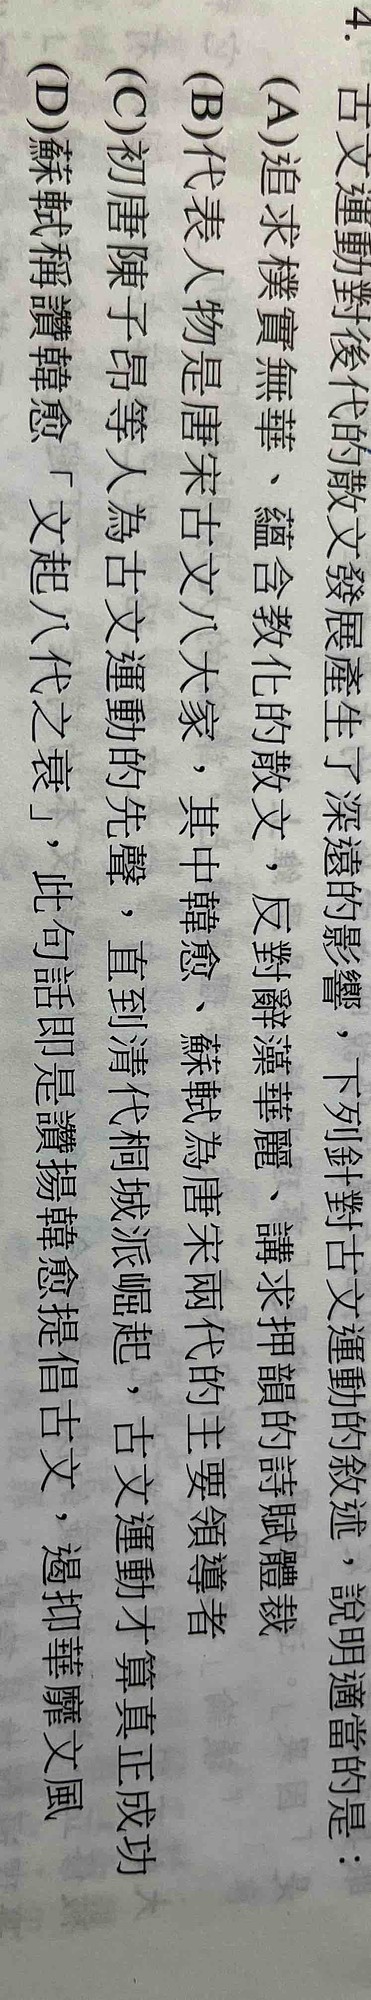 4. 古文運動對後代的散文發展產生了深遠的影響，下列針對古文運動的敘述，說明適當的是：
(A)追求樸實無華、蘊含教化的散文，反對辭藻華麗、講求押韻的詩賦體裁
(B)代表人物是唐宋古文八大家，其中韓愈、蘇軾為唐宋兩代的主要領導者
(C)初唐陳子昂等人為古文運動的先聲，直到清代桐城派崛起，古文運動才算真正成功
(D)蘇軾稱讚韓愈「文起八代之衰」，此句話即是讚揚韓愈提倡古文，遏抑華靡文風